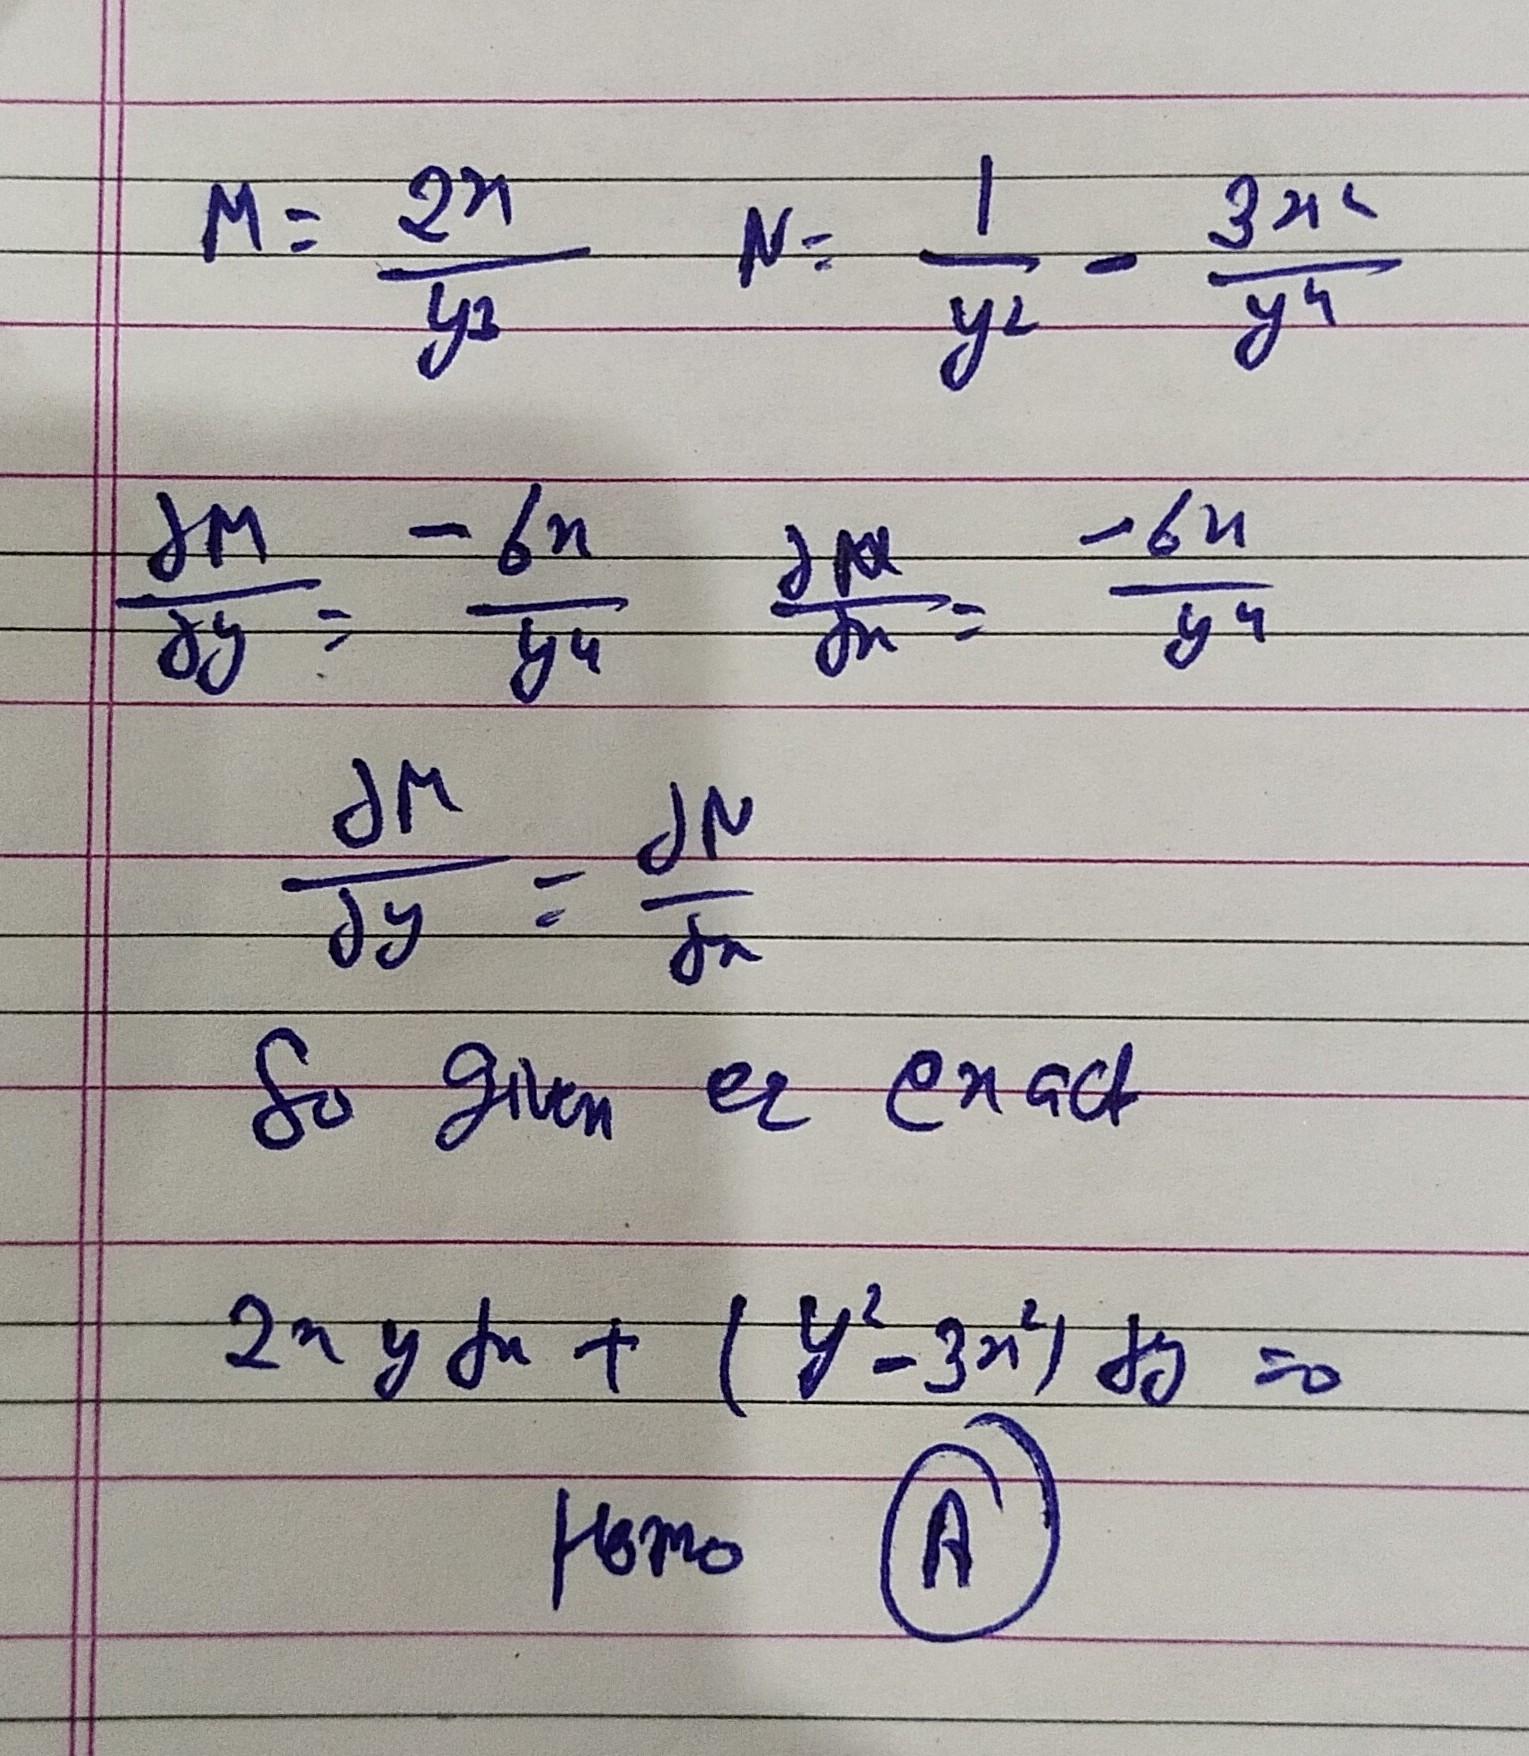 M = 2x/y3 N = 1/y2 - 3x2/y4
∂M/∂y = -6x/y4 ∂N/∂x = -6x/y4
∂M/∂y = ∂N/∂x
So given eq exact
2xy dx + (y² - 3x²) dy = 0
Homo A